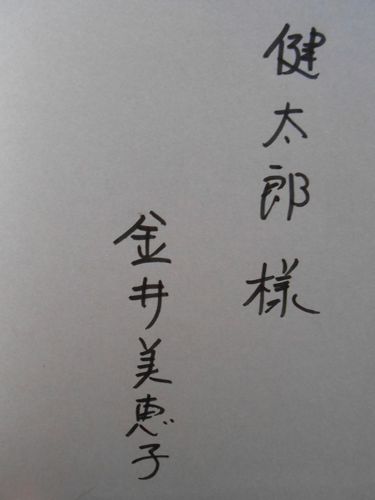 健太郎様
金井美恵子